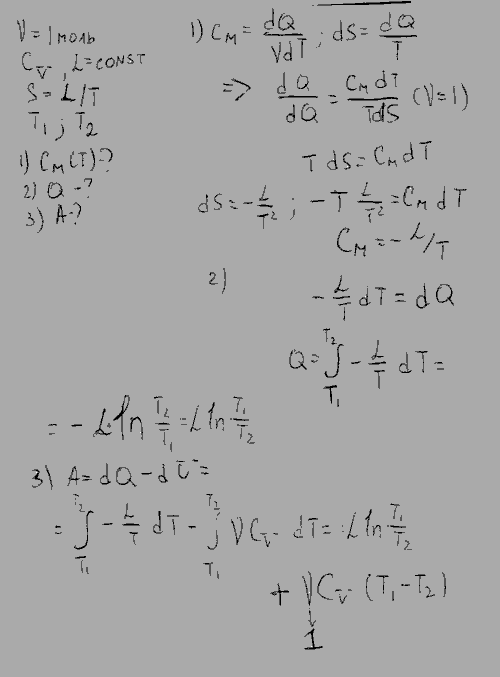 ν = 1 моль
C_V, L = const
S = L/T
T₁; T₂
1) C_M(T) - ?
2) Q - ?
3) A - ?
1) C_M = dQ/νdT; dS = dQ/T
=> dQ/dQ = C_M dT/TdS (ν=1)
T dS = C_M dT
dS = - L/T²; - T L/T² = C_M dT
C_M = - L/T
2)
- L/T dT = dQ
Q = ∫_{T₁}^{T₂} - L/T dT =
= - L ln T₂/T₁ = L ln T₁/T₂
3) A = dQ - dU =
= ∫_{T₁}^{T₂} - L/T dT - ∫_{T₁}^{T₂} νC_V dT = L ln T₁/T₂
+ νC_V (T₁ - T₂)
↓
1